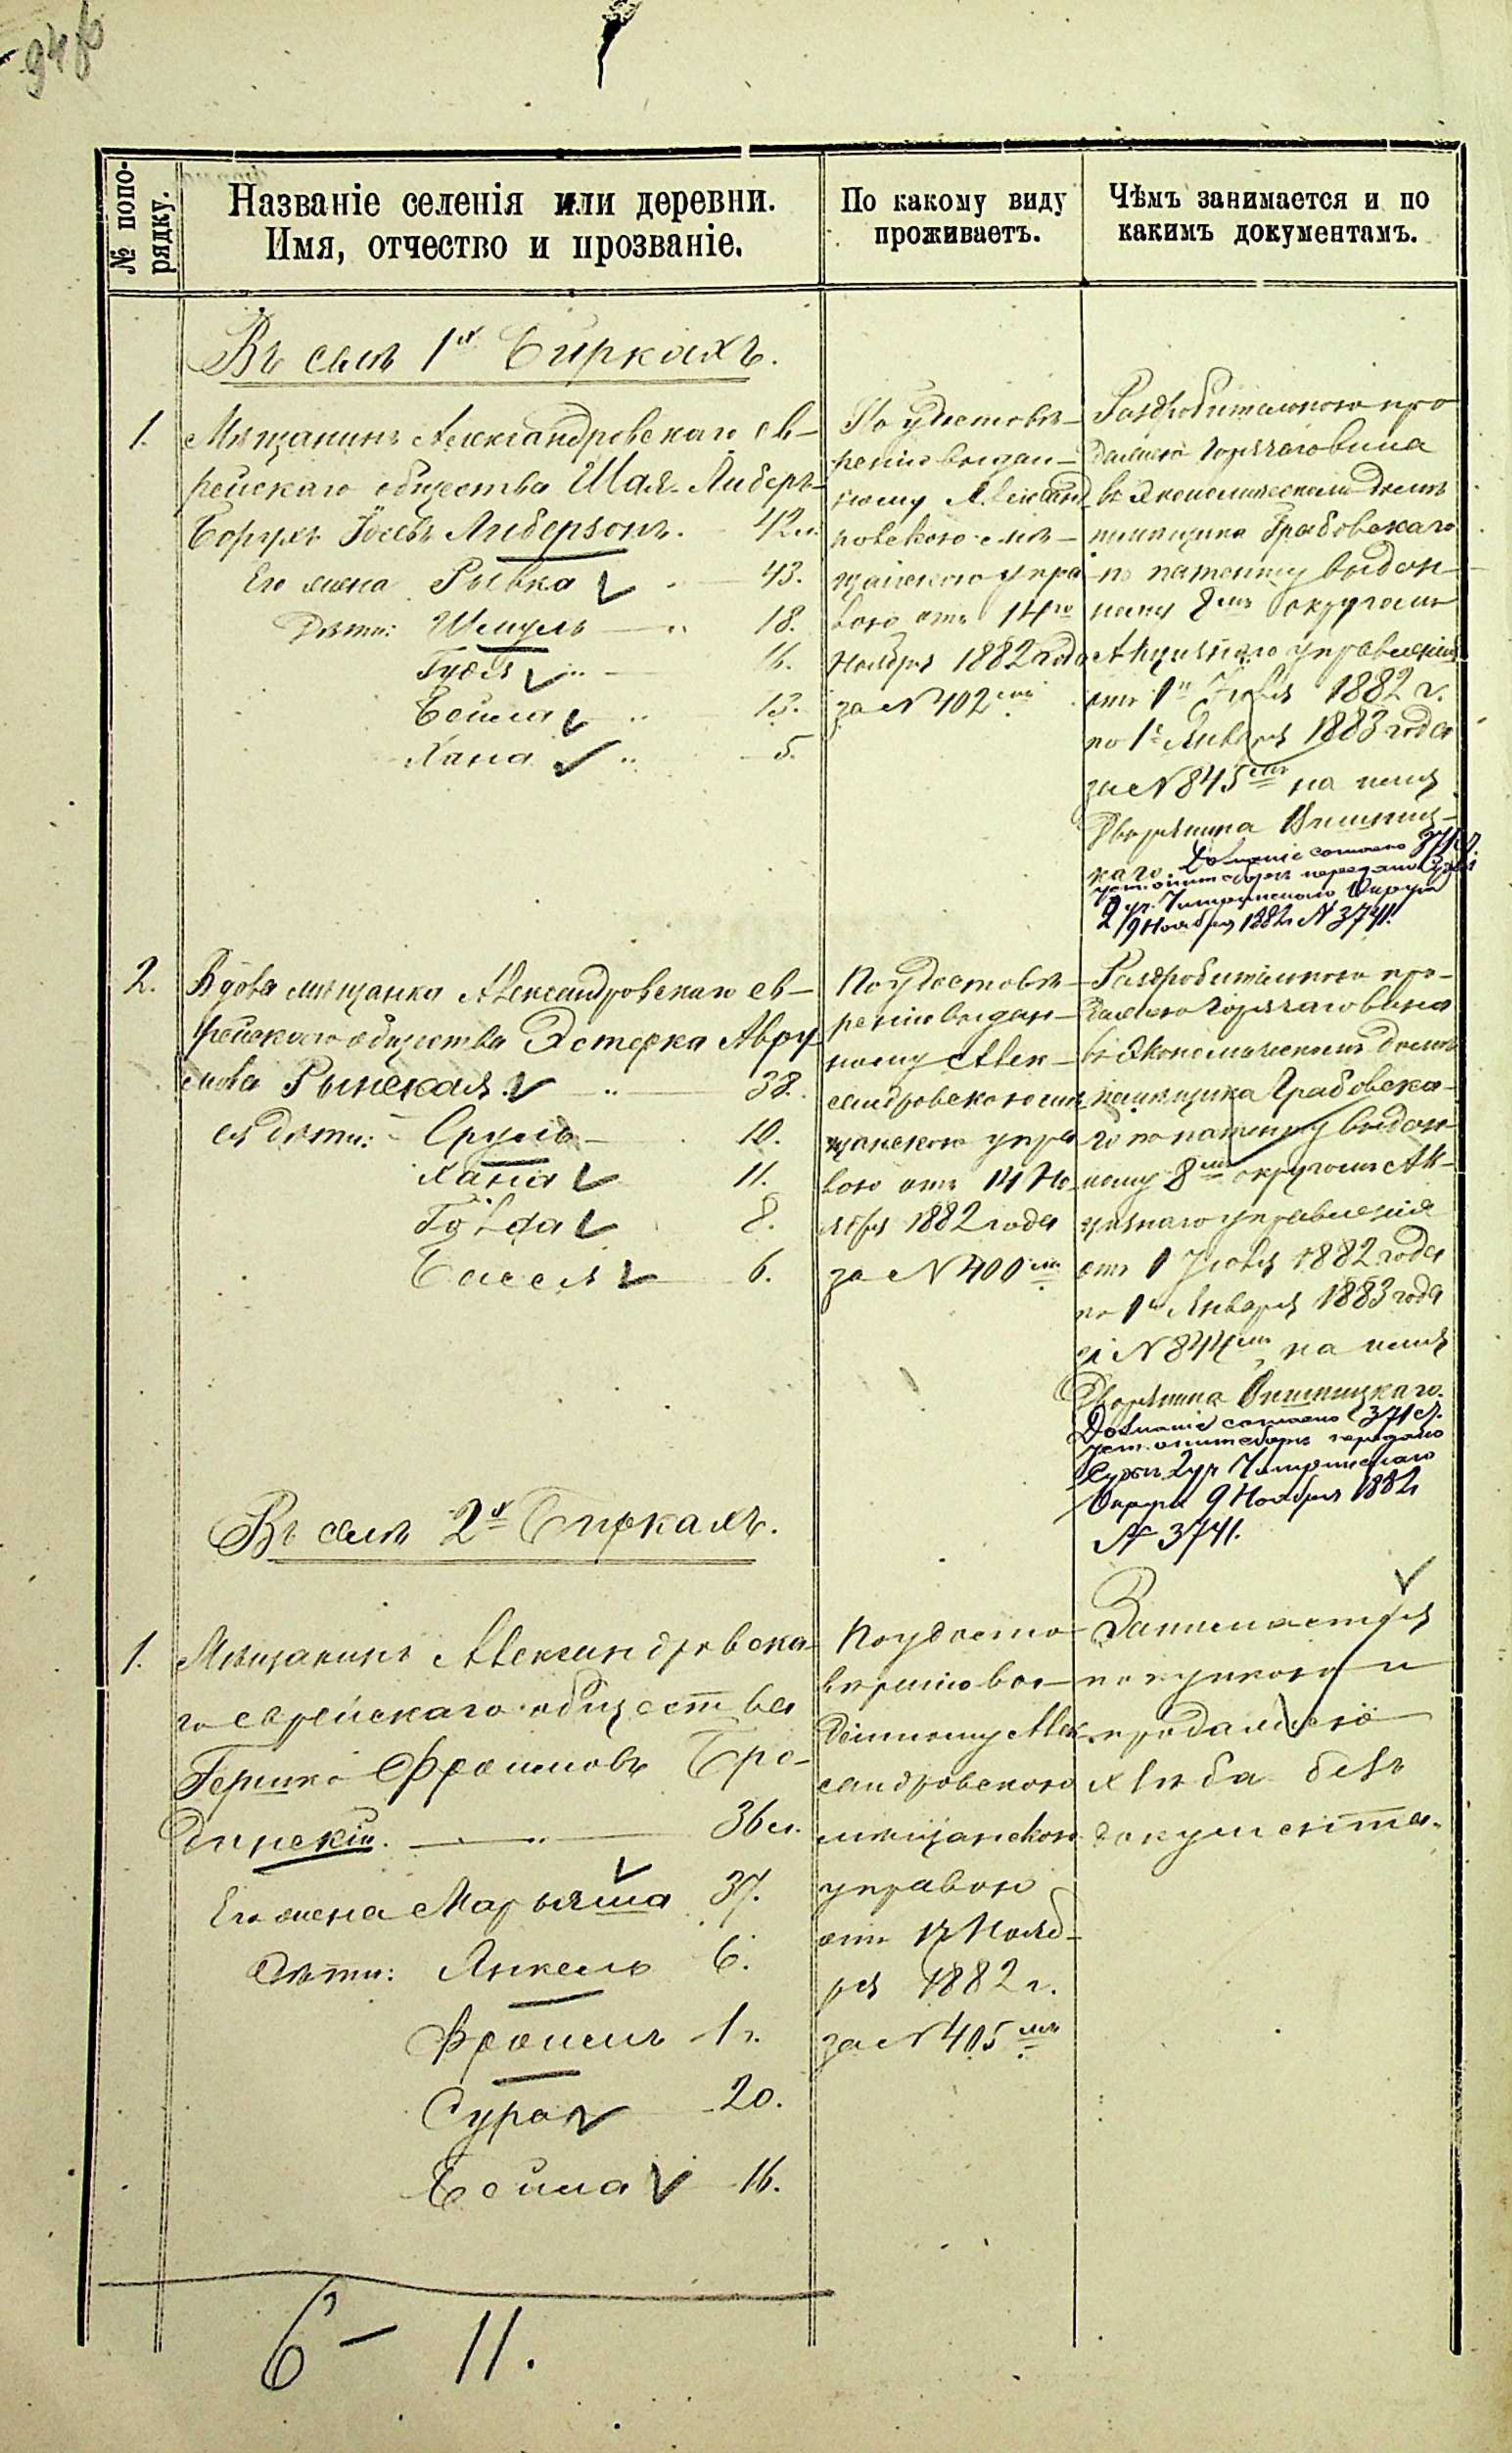 № попо-
рядку.
Названіе селенія или деревни.
Имя, отчество и прозваніе.
По какому виду
проживаетъ.
Чѣмъ занимается и по
какимъ документамъ.
Въ селѣ 1х Биркахъ.
1.
Мѣщанинъ Александровскаго ев-
рейскаго общества Шая-Либеръ-
Борухъ Іосевъ Либерзонъ. 42 л.
Его жена Рывка 43.
Дѣти: Шмуль 18.
Гудя 16.
Бейла 13.
Хана 5.
По удостовѣ-
ренію выдан-
ному Александ
ровскою мѣ-
щанскою упра
вою отъ 14го
Ноября 1882 года
за № 402мъ
Раздробительною про
дажею горячаго вина
въ Экономическомъ домѣ
помѣщика Грабовскаго
по патенту выдан
ному 8мъ округомъ
Акцизнаго управленія
отъ 1го Іюля 1882 г.
по 1е Января 1883 года
за № 845мъ на имя
Дворянина
каго. Дознаніе согласно 371 ст.
уст. о пит. сборѣ передано Судьи
2 уч. Чигиринскаго Округа
9 Ноября 1882 № 3741.
2.
Вдова мѣщанка Александровскаго ев-
рейскаго общества Эстерка Авру
мова 38.
ея дѣти: Сруль 10.
Хана 11.
Гольда 8.
Бася 6.
По удостовѣ-
ренію выдан-
ному Алек-
сандровскою мѣ
щанскою упра
вою отъ 14 Но-
ября 1882 года
за № 400мъ
Раздробительною про-
дажею горячаго вина
въ Экономическомъ домѣ
помѣщика Грабовска-
го по патенту выдан
ному 8мъ округомъ Ак-
цизнаго управленія
отъ 1 Іюля 1882 года
по 1е Января 1883 года
за № 844мъ на имя
Дворянина
Дознаніе согласно 371 ст.
уст. о пит. сборѣ передано
Судьи 2 уч. Чигиринскаго
Округа 9 Ноября 1882
№ 3741.
Въ селѣ 2х Биркахъ.
1.
Мѣщанинъ Александровска-
го еврейскаго общества
Гершко Фроимовъ Бро-
динскій. 36 л.
Его жена Марьяша 37.
Дѣти: Янкель 6.
Фроимъ 1 г.
Сура 20.
Бейла 16.
По удосто-
вѣренію вы-
данному Алек
сандровскою
мѣщанскою
управою
отъ 17 Нояб-
ря 1882 г.
за № 405мъ
Занимается
покупкою и
продажею
хлѣба безъ
документа.
6 - 11.